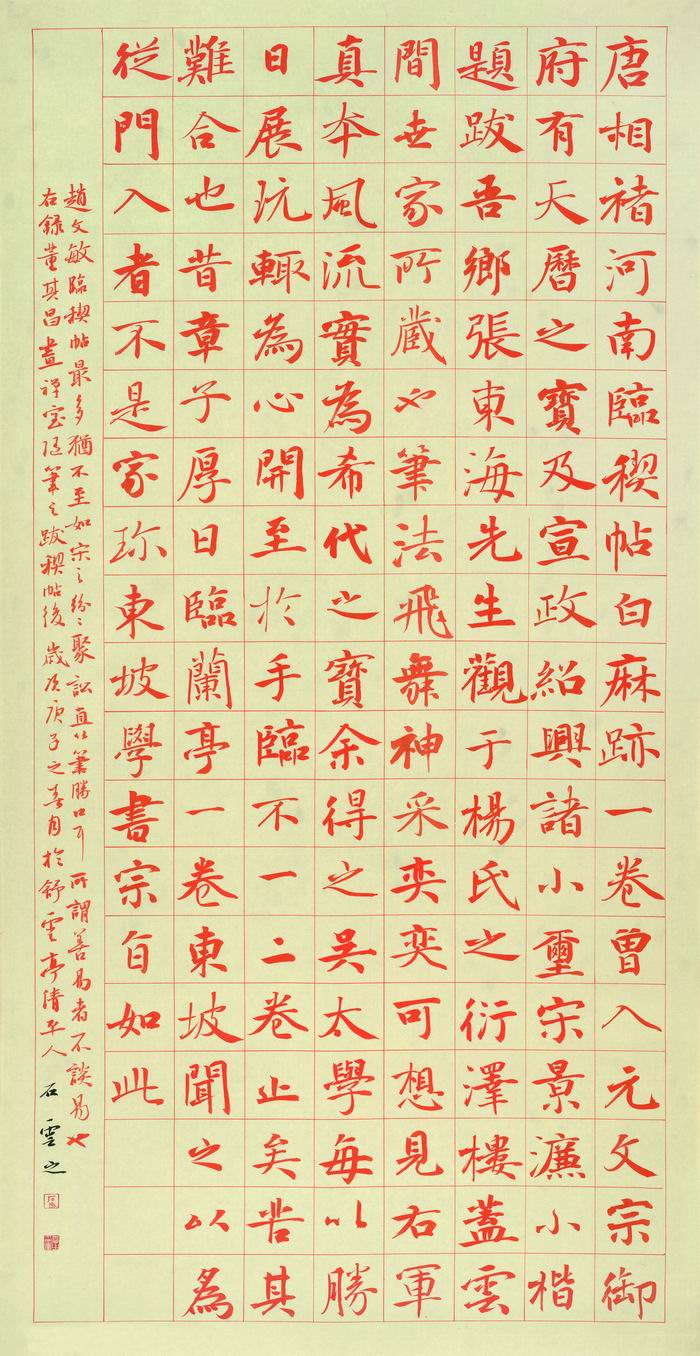 唐相褚河南臨稧帖白麻跡一卷曾入元文宗御
府有天曆之寶及宣政紹興諸小璽宋景濂小楷
題跋吾鄉張東海先生觀于楊氏之衍澤樓蓋雲
間世家所藏也筆法飛舞神采奕奕可想見右軍
真本風流實為希代之寶余得之吳太學每以勝
日展玩輒為心開至於手臨不一二卷止矣苦其
難合也昔章子厚日臨蘭亭一卷東坡聞之以為
從門入者不是家珍東坡學書宗旨如此
趙文敏臨稧帖最多猶不至如宋之紛紛聚訟直以筆勝口耳所謂善易者不談易也
右錄董其昌畫禪室隨筆之跋稧帖後 歲次庚子之春月於舒雲亭清平人 石雲之